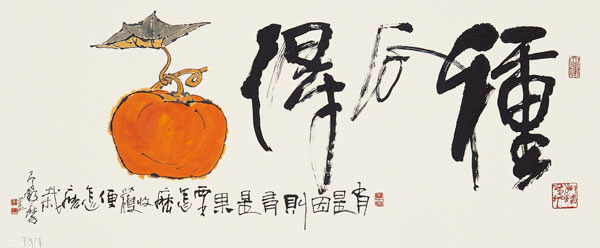 種瓜得
有是因則有是果要怎麼收穫便怎麼栽